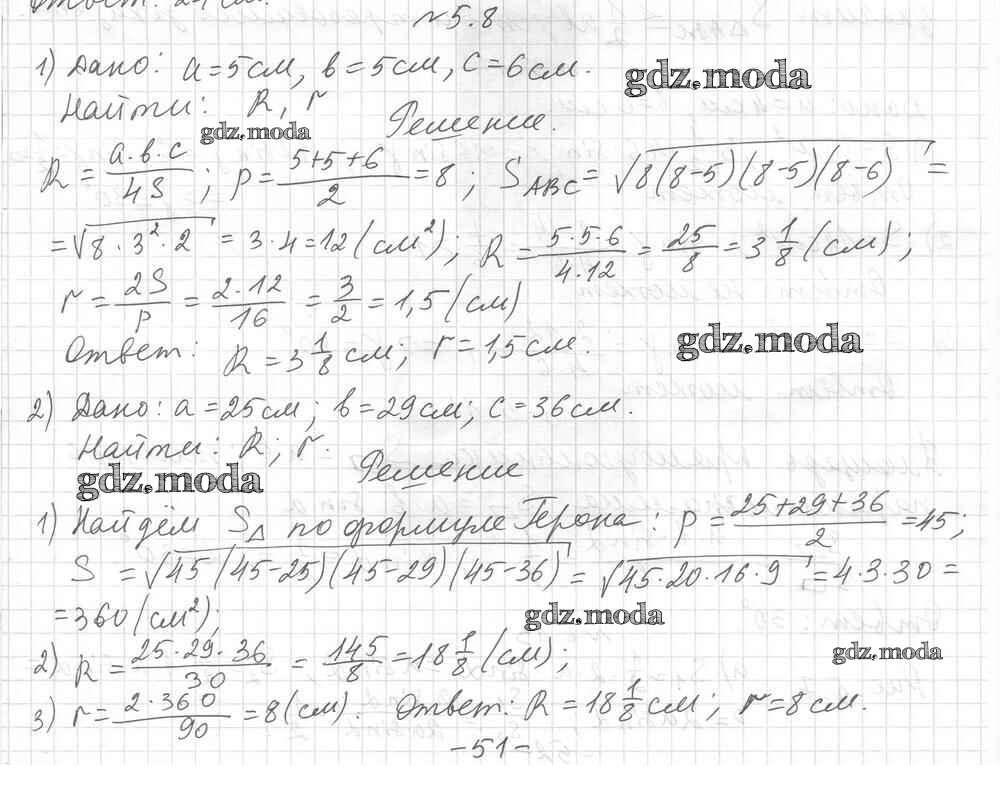 №5.8
1) Дано: a=5см, b=5см, c=6см.
gdz.moda
Найти: R, r
gdz.moda
Решение.
R = a·b·c/4S ; p = 5+5+6/2 = 8 ; S_ABC = √8(8-5)(8-5)(8-6) =
= √8·3²·2 = 3·4=12(см²); R = 5·5·6/4·12 = 25/8 = 3 1/8 (см);
r = 2S/p = 2·12/16 = 3/2 = 1,5 (см)
Ответ: R = 3 1/8 см; r = 1,5см.
gdz.moda
2) Дано: a=25см; b=29см; c=36см.
Найти: R; r.
gdz.moda
Решение
1) Найдём S△ по формуле Герона: p = 25+29+36/2 = 45;
S = √45(45-25)(45-29)(45-36) = √45·20·16·9 = 4·3·30 =
= 360(см²);
gdz.moda
2) R = 25·29·36/30 = 145/8 = 18 1/8 (см);
gdz.moda
3) r = 2·360/90 = 8(см). Ответ: R = 18 1/8 см; r = 8см.
-51-